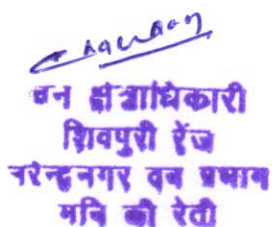 वन क्षेत्राधिकारी
शिवपुरी रेंज
नरेन्द्रनगर वन प्रभाग
मुनि की रेती